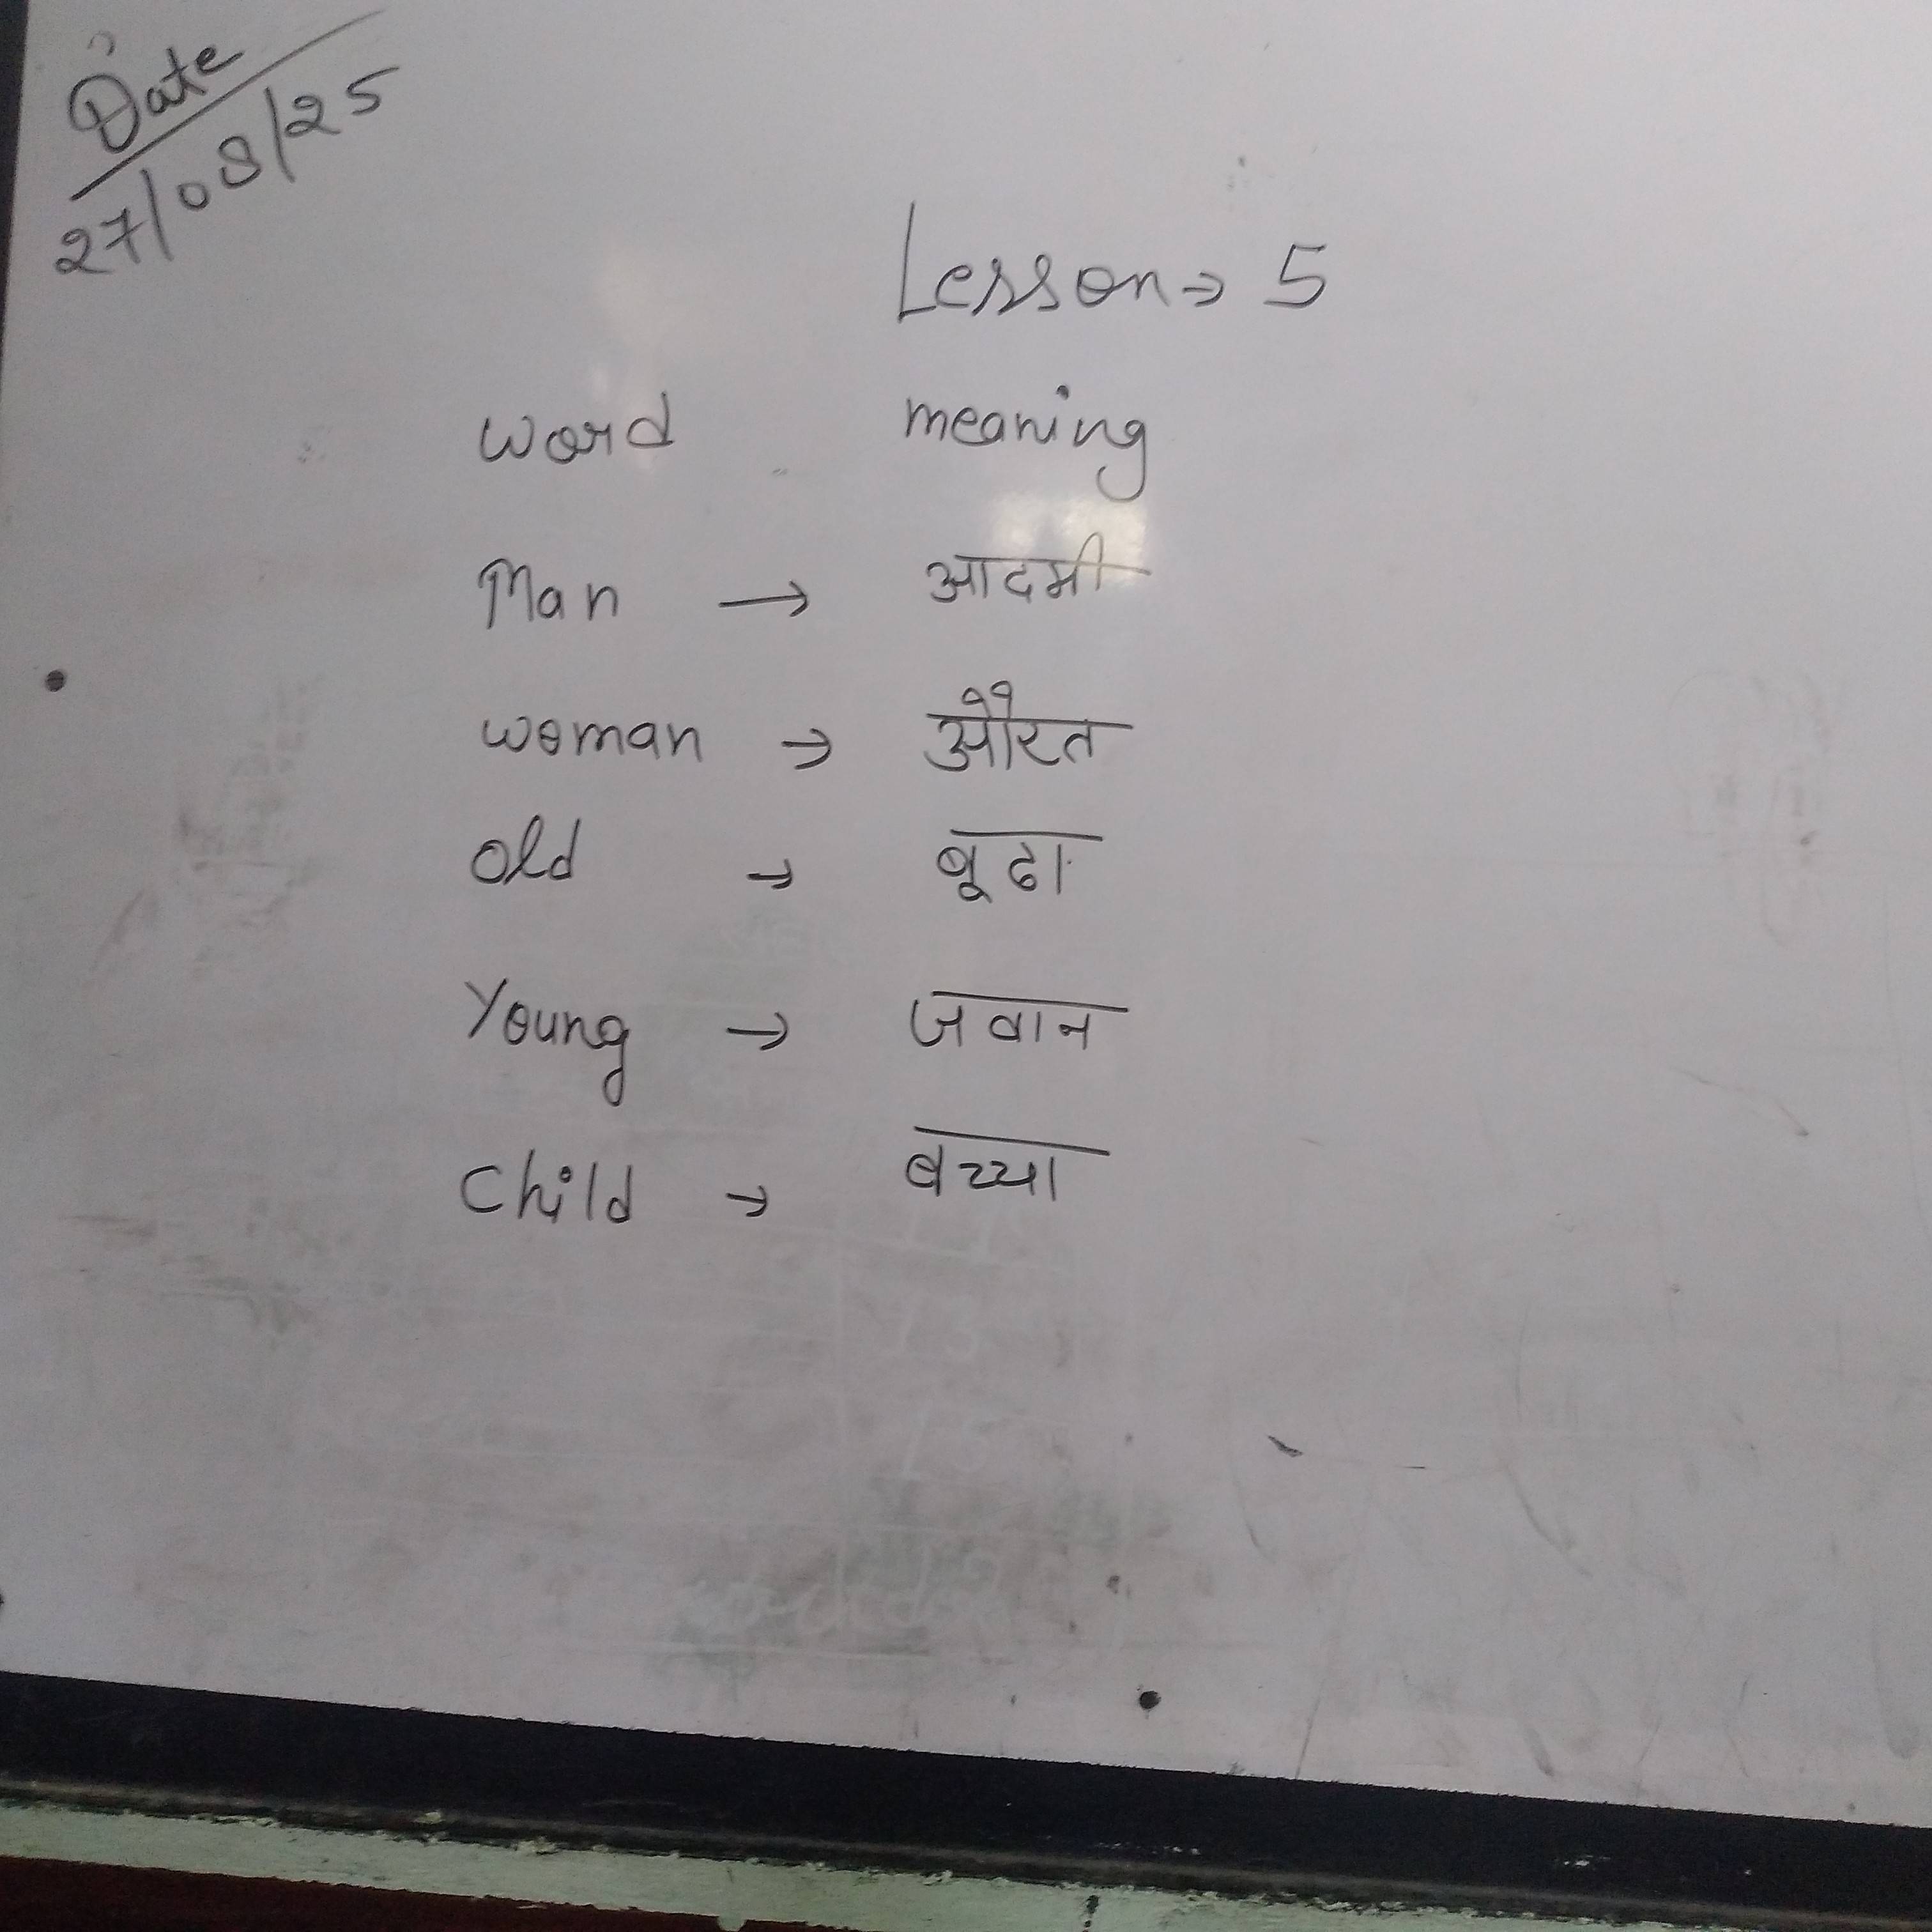 Date
27/08/25
Lesson → 5
word meaning
Man → आदमी
woman → औरत
old → बूढा
Young → जवान
Child → बच्चा